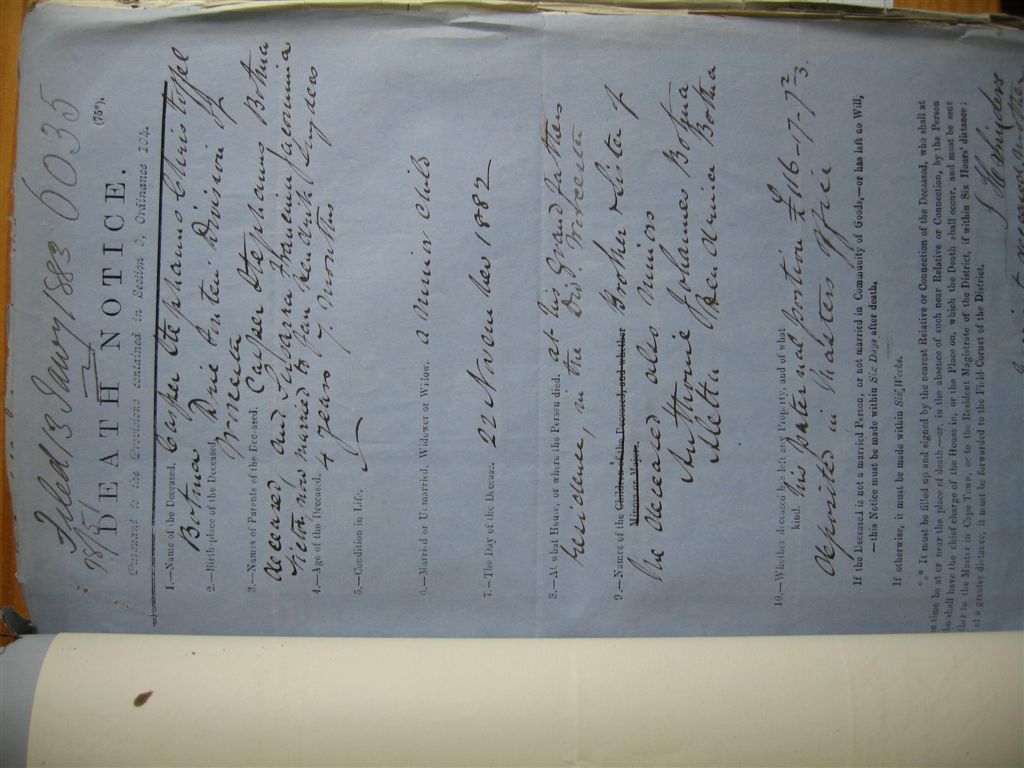 Filed 13 Jany 1883 6035
DEATH NOTICE.
(75*).
Pursuant to the Provisions contained in Section 9, Ordinance 104.
1.—Name of the Deceased. Casper Stephanus Christoffel
Botma
2.—Birth-place of the Deceased. Drie Fontein Division of
Worcester
3.—Names of Parents of the Deceased. Casper Stephanus Botma
deceased and Susanna Francina Jacomina
now married to Jan Hendrik
4.—Age of the Deceased. 4 years 7 months
5.—Condition in Life.
6.—Married or Unmarried, Widower or Widow. a Minor child
7.—The Day of the Decease. 22 November 1882
8.—At what House, or where the Person died. at his Grand fathers
residence, in the Div. Worcester
9.—Names of the Children of the Deceased, and whether Brother & Sister of
Minors or Majors.
the deceased also Minors
Anthonie Johannes Botma
Aletta Botma
10.—Whether deceased has left any Property, and of what
kind. his paternal portion £116-7-7 2/3.
deposited in Masters office
If the Deceased is not a married Person, or not married in Community of Goods,—or has left no Will,
—this Notice must be made within Six Days after death.
If otherwise, it must be made within Six Weeks.
It must be filled up and signed by the nearest Relative or Connection of the Deceased, who shall at
e time be at or near the place of death—or, in the absence of such near Relative or Connection, by the Person
ho shall have the chief charge of the House in, or the Place on, which the Death shall occur, and must be sent
ther to the Master in Cape Town, or to the Resident Magistrate of the District, if within Six Hours' distance;
at a greater distance, it must be forwarded to the Field-Cornet of the District.